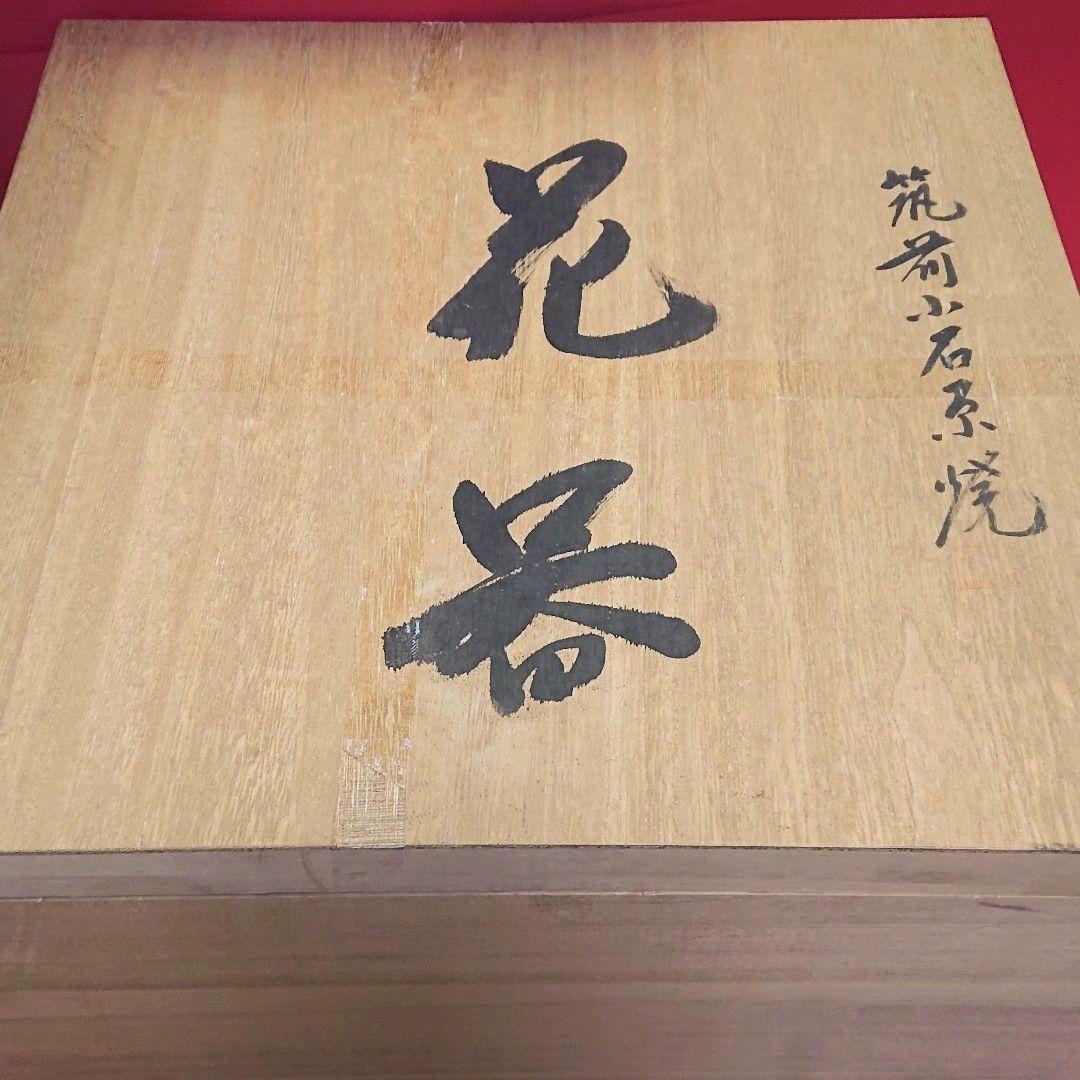 筑前小石原焼
花器